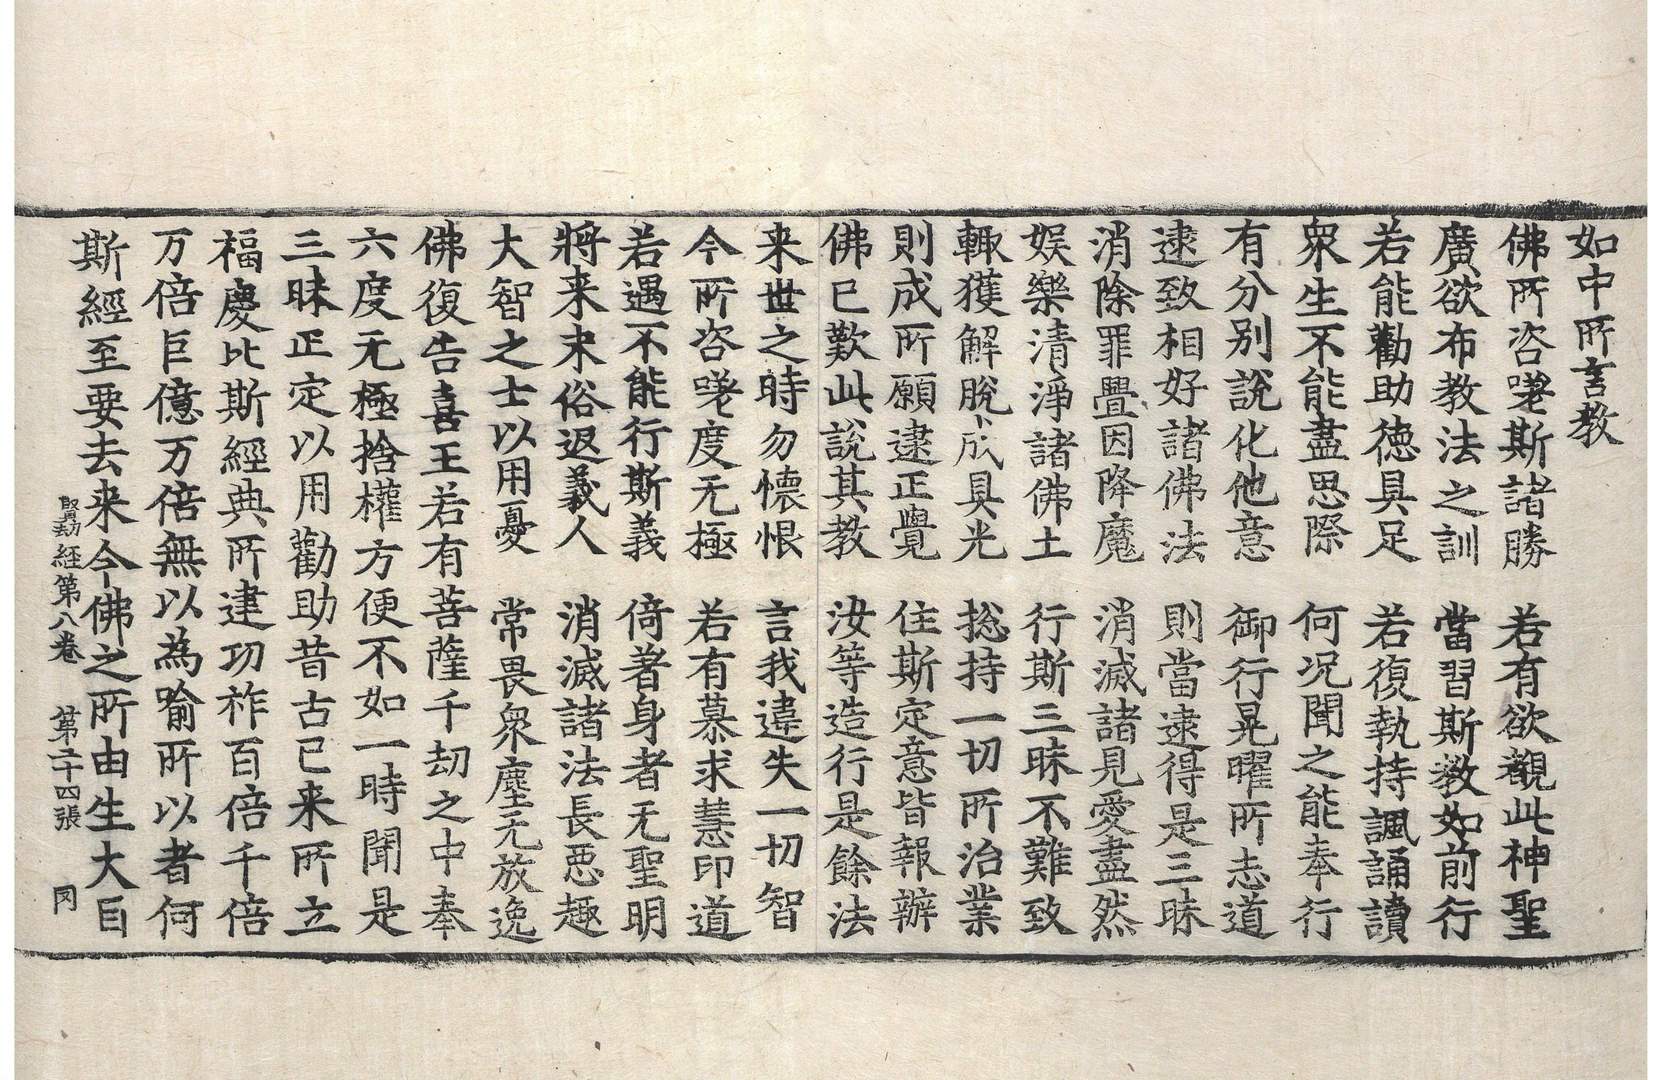 如中所言教
佛所咨嗟斯諸勝　若有欲觀此神聖
廣欲布教法之訓　當習斯教如前行
若能勸助德具足　若復執持諷誦讀
衆生不能盡思際　何況聞之能奉行
有分別說化他意　御行晃曜所志道
逮致相好諸佛法　則當逮得是三昧
消除罪疊因降魔　消滅諸見愛盡然
娛樂清淨諸佛土　行斯三昧不難致
輙獲解脫成具光　捴持一切所治業
則成所願逮正覺　住斯定意皆報辦
佛已歎此說其教　汝等造行是餘法
来世之時勿懷恨　言我違失一切智
今所咨嗟度无極　若有慕求慧印道
若遇不能行斯義　倚著身者无聖明
將来末俗返義人　消滅諸法長惡趣
大智之士以用憂　常畏衆塵无放逸
佛復告喜王若有菩薩千劫之中奉
六度无極捨權方便不如一時聞是
三昧正定以用勸助昔古已来所立
福慶比斯經典所建功祚百倍千倍
万倍巨億万倍無以為喻所以者何
斯經至要去来今佛之所由生大目
賢劫經第八卷　第二十四張　冈